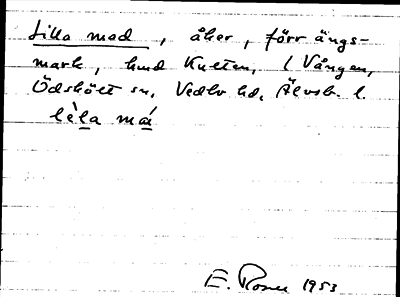 Lilla mad, åker, förr ängs-
mark, hmd Kulten, l Vången,
Ödskölt sn, Vedbo hd, Älvsb. l.
lèla má
E. Rosell 1953